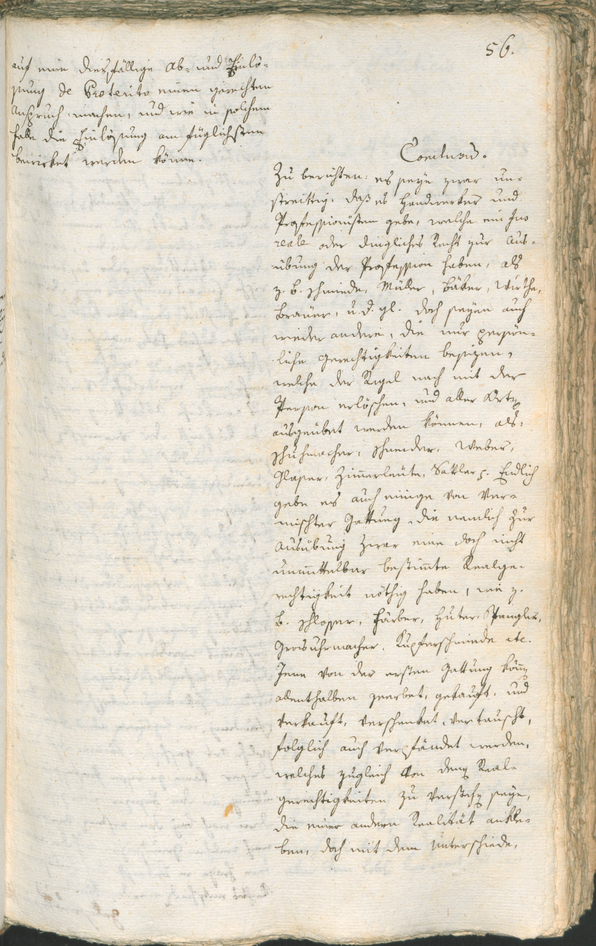 56.
auf eine diesfällige Ab- und Einlö-
sung de Praeterito einen gerechten
Anspruch machen, und wie in solchem
falle die Einlösung am füglichsten
bewirket werden könne.
Conclusum.
Zu berichten: es seye zwar un-
streittig, daß es Handwerker und
Professionisten gebe, welche ein Jus
reale oder dingliches Recht zur Aus-
übung der Profession haben, als
z. b. Schmiede, Müller, Bäker, Wirthe,
Brauer, u. d. gl. doch seyen auch
wieder andere, die nur persön-
liche Gerechtigkeiten besizen,
welche der Regel nach mit der
Person erlöschen, und aller Orten
ausgeübet werden können, als:
Schuhmacher, Schneider, Weber,
Glaser, Zimmerleute, Sattler Endlich
gebe es auch einige von ver-
mischter Gattung, die namlich zur
Ausübung zwar eine doch nicht
unmittelbar bestimmte Realge-
rechtigkeit nöthig haben, wie z.
b. Schlosser, Färber, Huter, Spengler,
Grosuhrmacher, Kupferschmiede etc.
Jene von der ersten Gattung könen
allenthalben geerbet, gekauft, und
verkauft, verschenket, vertauscht,
folglich auch verpfändet werden,
welches zugleich von denen Real-
gerechtigkeiten zu verstehen seye,
die einer andern Realität ankle-
ben, doch mit dem Unterschiede,